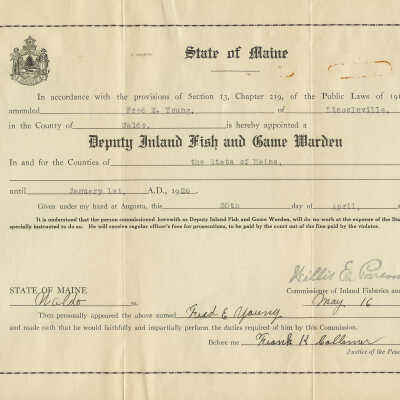 State of Maine
In accordance with the provisions of Section 13, Chapter 219, of the Public Laws of 19
amended Fred E. Young, of Lincolnville,
in the County of Waldo, is hereby appointed a
Deputy Inland Fish and Game Warden
In and for the Counties of the State of Maine,
until January 1st, A.D., 1926.
Given under my hand at Augusta, this 20th day of April,
It is understood that the person commissioned herewith as Deputy Inland Fish and Game Warden, will do no work at the expense of the Sta
specially instructed to do. He will receive regular officer's fees for prosecutions, to be paid by the court out of the fine paid by the violator.
Willis E. Parson
Commissioner of Inland Fisheries and
STATE OF MAINE
Waldo ss. May 16
Then personally appeared the above named Fred E Young
and made oath that he would faithfully and impartially perform the duties required of him by this Commission.
Before me Frank K
Justice of the Peac